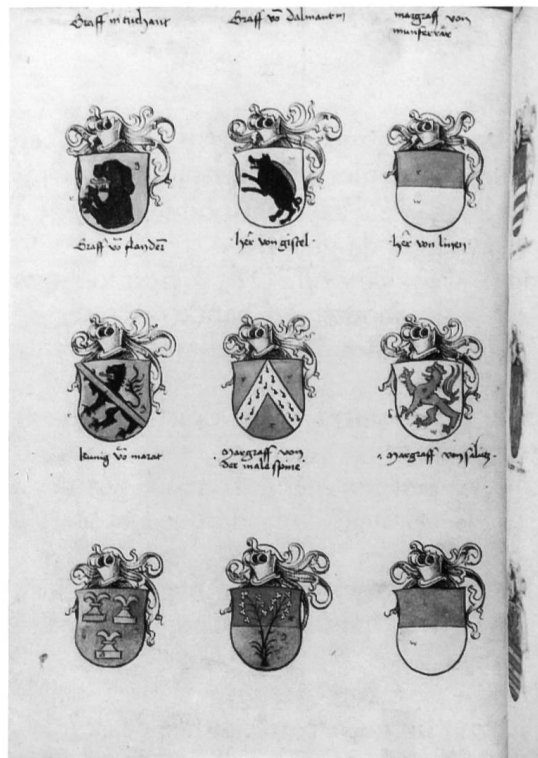 Graff in tuchant
Graff vō dalmantin
margraff von
munferrar
Graff vō flandeɾ
her von gistel
her von linen
kunig vō marat
Margraff von
der mala spine
Margraff von salutz